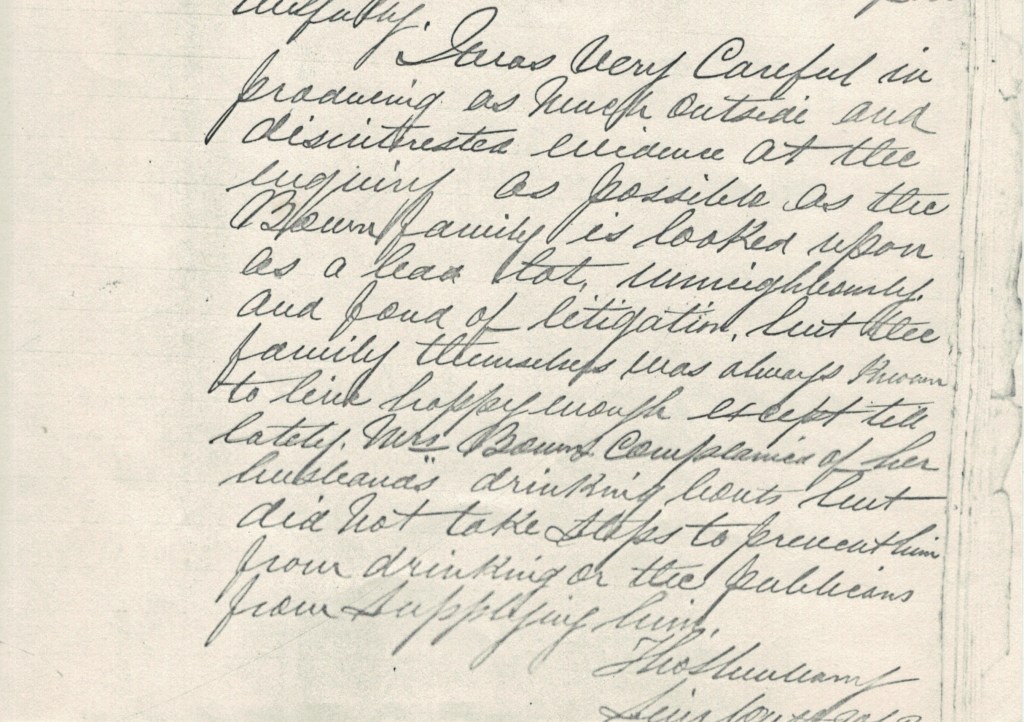 wilfully.
I was Very Careful in
producing as Much Outside and
disinterested evidence at the
enquiry as possible as the
Bown family is looked upon
as a bad lot, unneighbourly.
and fond of litigation, but the
family themselves was always Known
to live happy enough except till
lately. Mrs Bown Complained of her
husband's drinking bouts but
did Not take Steps to prevent him
from drinking or the publicans
from Supplying him.